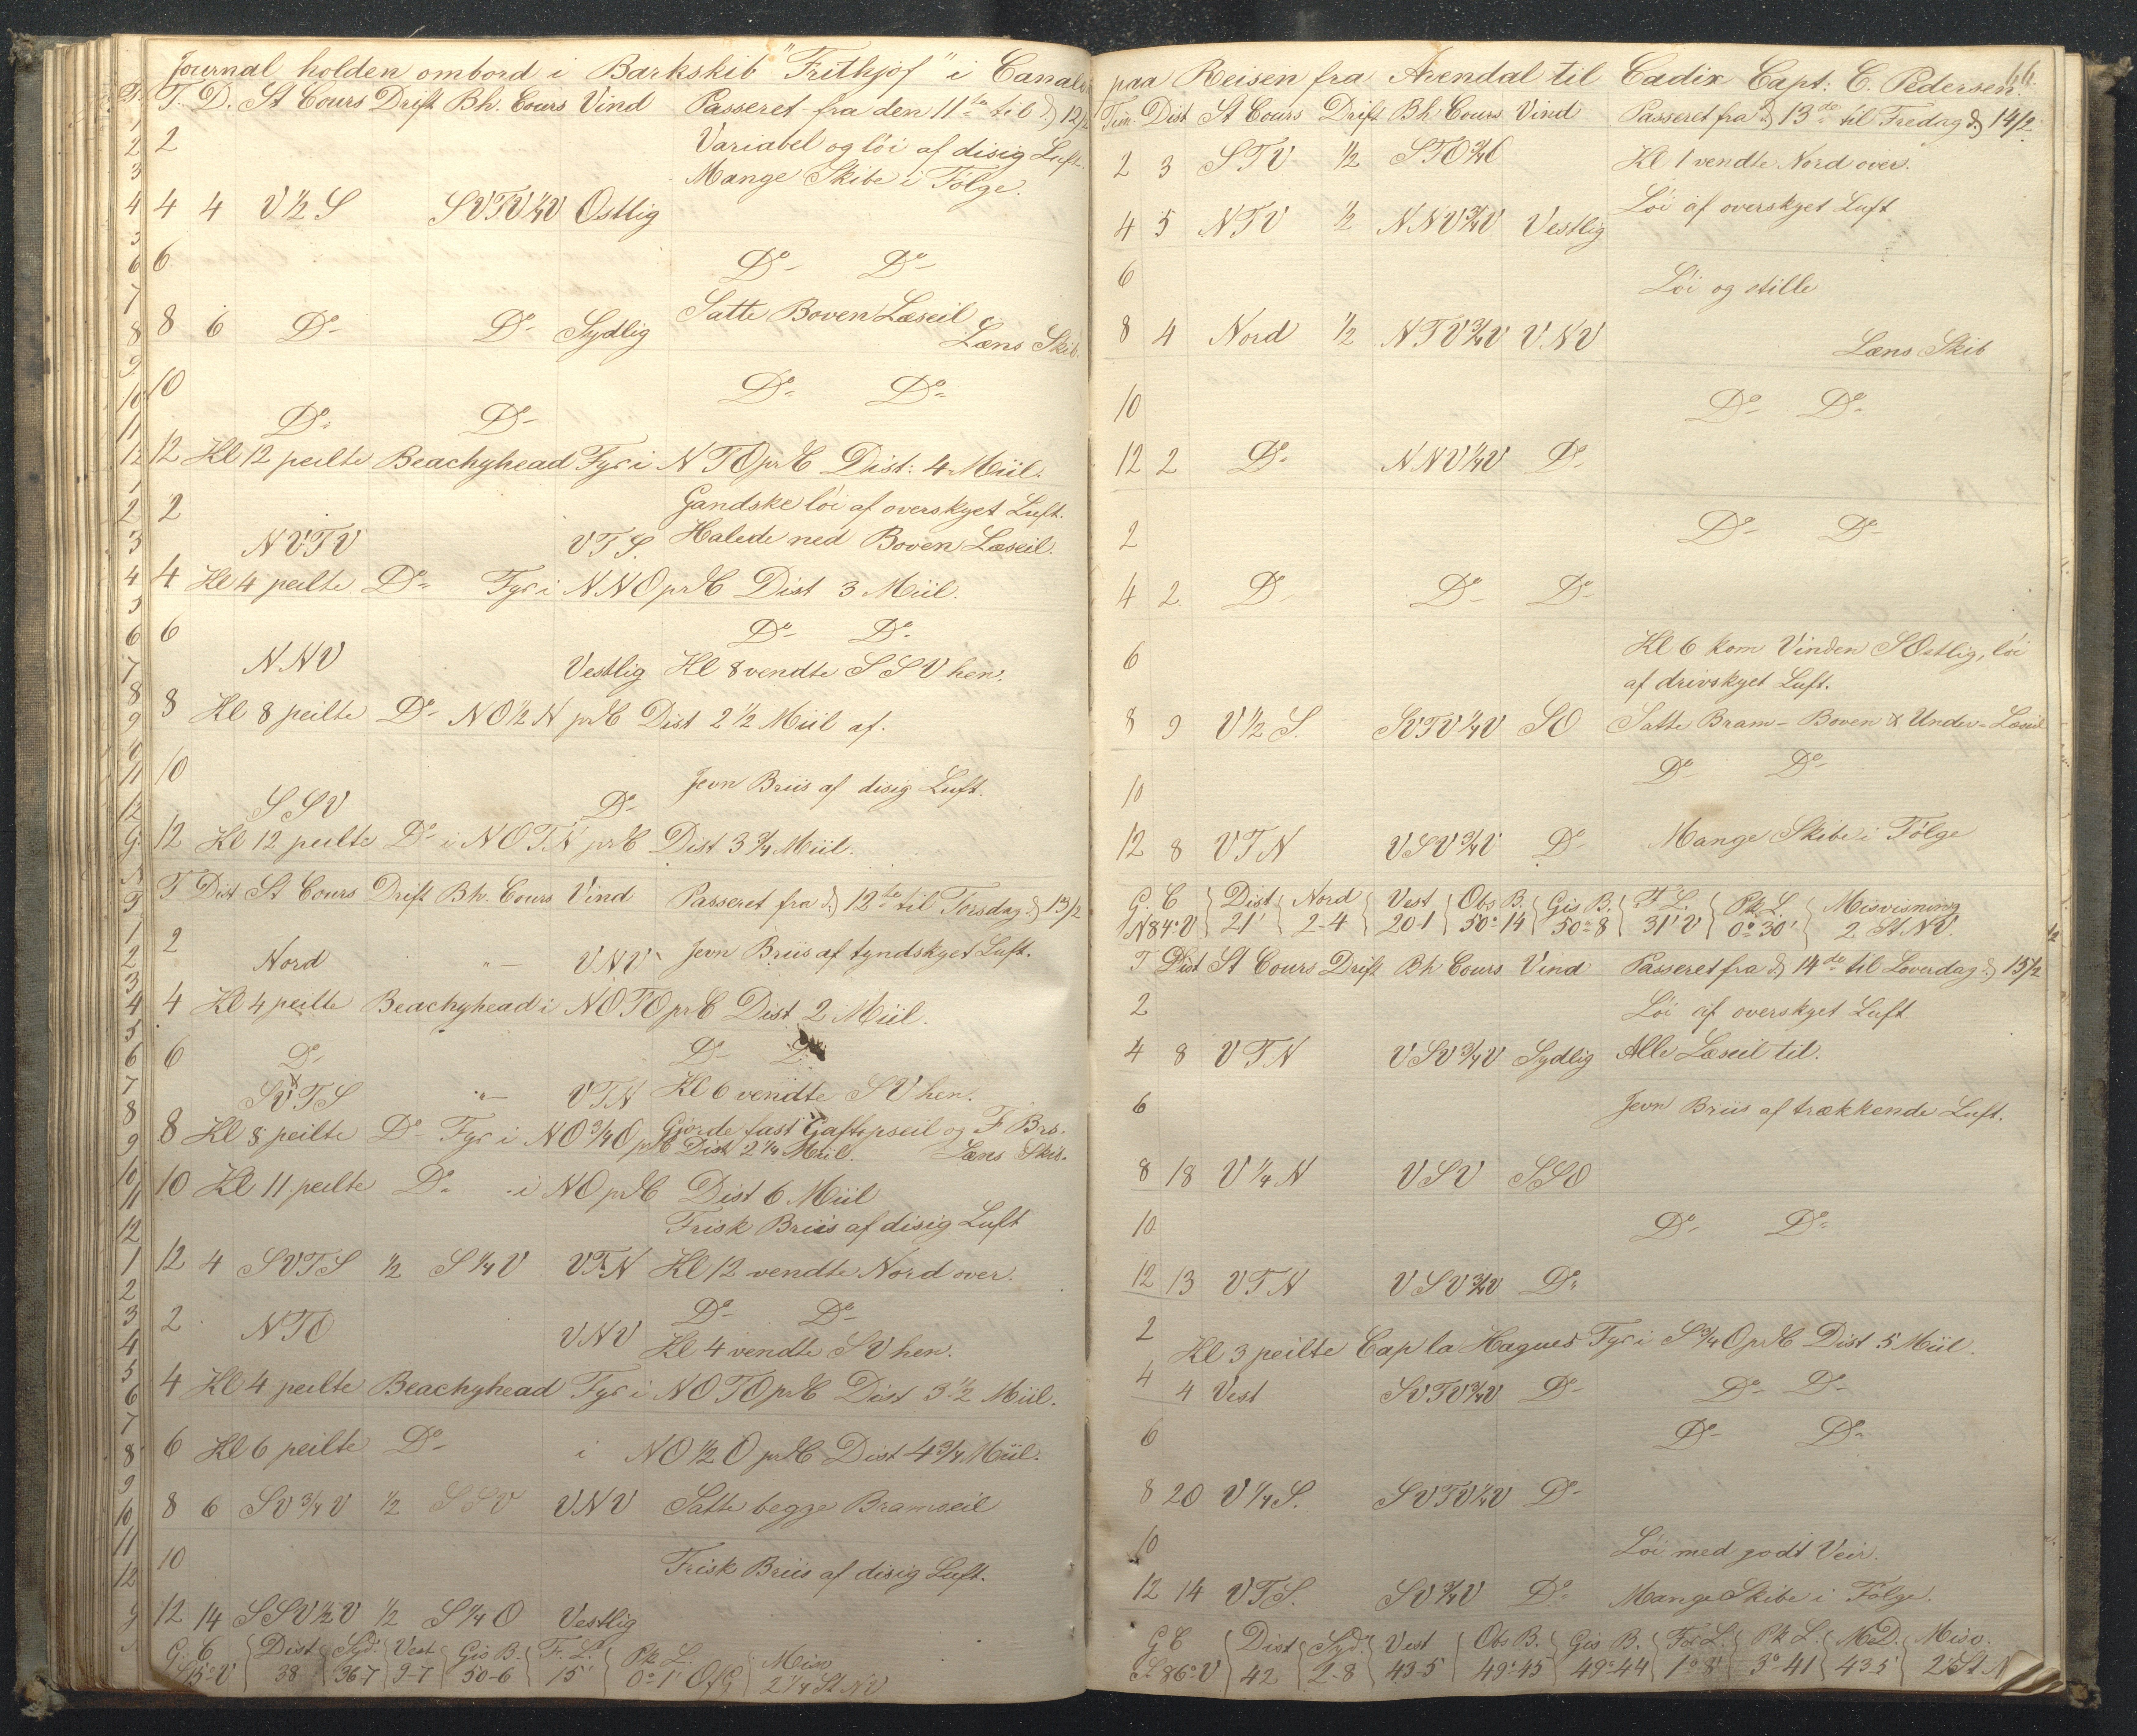 Journal holden ombord i Barkskib "Frithjof" i Canalen
T. D. St Cours Drift Bh. Cours Vind Passeret fra den 11te til d 12/2
2 Variabel og løi af disig Luft.
Mange Skibe i Følge.
4 4 V½S SVTV¼V Ostlig
6 Do- Do-
8 6 Do- Do- Sydlig Satte Boven Læseil
Læns Skib.
10 Do- Do-
Do- Do-
12 Kl 12 peilte Beachyhead Fyr i NTO pr C Dist: 4 Miil.
2 Gandske løi af overskyget Luft.
NVTV VTS. Halede ned Boven Læseil.
4 Kl 4 peilte Do- Fyr i NNO pr C Dist 3 Miil.
6 Do- Do-
NNV Vestlig Kl 8 vendte SSV hen.
8 Kl 8 peilte Do- NO½N pr C Dist 2½ Miil af.
10 Jevn Briis af disig Luft.
SSV Do-
12 Kl 12 peilte Do- i NOTN pr C Dist 3¾ Miil.
T Dist St Cours Drift Bh. Cours Vind Passeret fra d 12te til Torsdag d 13/2
2 Nord "- VNV Jevn Briis af tyndskyget Luft.
4 Kl 4 peilte Beachyhead i NOTO pr C Dist 2 Miil.
6 Do- Do- D
SVTS "- VTN Kl 6 vendte SV hen.
8 Kl 8 peilte Do- Fyr i NO¾O pr C Dist 2¼ Miil. Gjorde fast Gaftopseil og F Brs.
Læns Skib.
10 Kl 11 peilte Do- i NO pr C Dist 6 Miil
Frisk Briis af disig Luft
12 4 SVTS ½ S¼V VTN Kl 12 vendte Nord over.
2 NTO VNV Do- Do-
Kl 4 vendte SV hen.
4 Kl 4 peilte Beachyhead Fyr i NOTO pr C Dist 3½ Miil.
6 Kl 6 peilte Do- i NO½O pr C Dist 4¾ Miil.
8 6 SV¾V ½ SSV VNV Satte begge Bramseil
10 Frisk Briis af disig Luft.
12 14 SSV½V ½ S¼O Vestlig
G. C Dist Syd. Vest Gis B. F. L. Pk L. Misv
S15°V 38 36-7 9-7 50-6 15' 0°1' OfG 2¼ St NV
paa Reisen fra Arendal til Cadix Capt: C. Pedersen.
66.
Tim. Dist St Cours Drift Bh Cours Vind Passeret fra d 13de til Fredag d 14/2
2 3 STV ½ STO¾O Kl 1 vendte Nord over.
4 5 NTV ½ NNV¾V Vestlig Løi af overskyget Luft
6 Løi og stille
8 4 Nord ½ NTV¾V VNV Læns Skib
10 Do- Do-
12 2 Do- NNV¼V Do-
2 Do- Do-
4 2 Do- Do- Do-
6 Kl 6 kom Vinden SOstlig, løi
af drivskyget Luft.
8 9 V½S. SVTV¼V SO Satte Bram- Boven & Under-Læseil
10 Do- Do-
12 8 VTN VSV¾V Do- Mange Skibe i Følge
G. C Dist Nord Vest Obs B. Gis B. F L. Pk L. Misvisning
N84°V 21' 2-4 20-1 50°14 50°8 31'V 0°30' 2 St NV.
T Dist St Cours Drift Bh Cours Vind Passeret fra d 14de til Loverdag d 15/2
2 Løi af overskyget Luft
4 8 VTN VSV¾V Sydlig Alle Læseil til.
6 Jevn Briis af trækkende Luft.
8 18 V¼N VSV SSO
10 Do- Do-
12 13 VTN VSV¾V Do-
2 Kl 3 peilte Cap la Hagues Fyr i S¾O pr C Dist 5 Miil.
4 4 Vest SVTV¾V Do- Do- Do-
6 Do- Do-
8 20 V¼S. SVTV¼V Do-
10 Løi med godt Veir.
12 14 VTS. SV¾V Do- Mange Skibe i Følge.
G C Dist Syd. Vest Obs B. Gis B. For L. Pk L. M.D. Misv.
S86°V 42 2-8 43-5 49°45 49°44 1°8' 3°41 43.5 2 St N